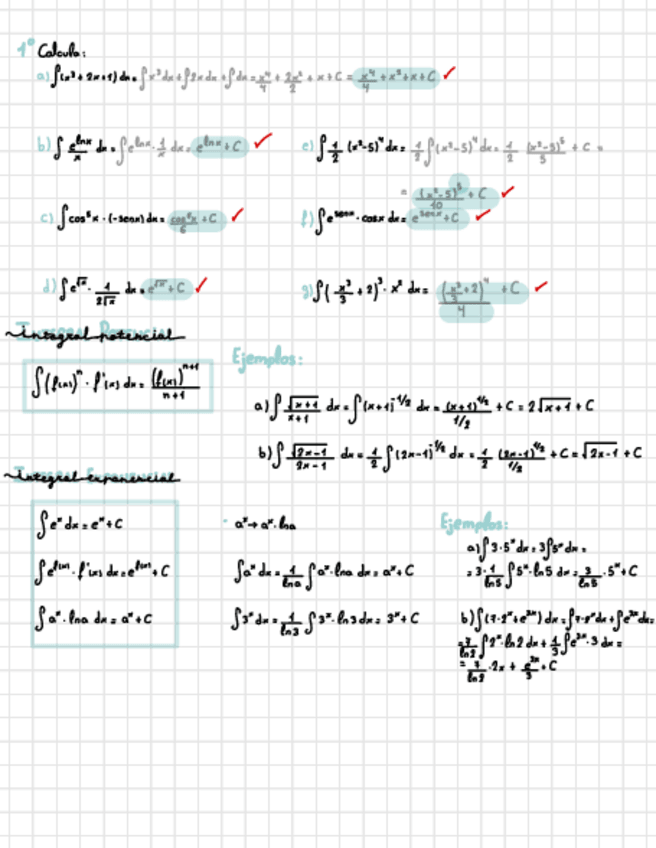 1º Calcula:
a) ∫(x³ + 2x + 1) dx = ∫x³ dx + ∫2x dx + ∫dx = x⁴/4 + 2x²/2 + x + C = x⁴/4 + x² + x + C ✓
b) ∫ e^(lnx)/x dx = ∫e^(lnx) · 1/x dx = e^(lnx) + C ✓
e) ∫ 1/2 (x²-5)⁴ dx = 1/2 ∫(x²-5)⁴ dx = 1/2 (x²-5)⁵/5 + C =
= (x²-5)⁵/10 + C ✓
c) ∫cos⁵x · (-senx) dx = cos⁶x/6 + C ✓
f) ∫e^(senx) · cosx dx = e^(senx) + C ✓
d) ∫e^(√x) · 1/(2√x) dx = e^(√x) + C ✓
g) ∫(x³/3 + 2)³ · x² dx = (x³/3 + 2)⁴/4 + C ✓
Integral Potencial
∫(f(x))ⁿ · f'(x) dx = (f(x))ⁿ⁺¹/(n+1)
Ejemplos:
a) ∫ √(x+1)/(x+1) dx = ∫(x+1)^(-1/2) dx = (x+1)^(1/2)/(1/2) + C = 2√(x+1) + C
b) ∫ √(2x-1)/(2x-1) dx = 1/2 ∫(2x-1)^(-1/2) dx = 1/2 (2x-1)^(1/2)/(1/2) + C = √(2x-1) + C
Integral Exponencial
∫eˣ dx = eˣ + C
∫e^(f(x)) · f'(x) dx = e^(f(x)) + C
∫aˣ · lna dx = aˣ + C
· aˣ → aˣ · lna
∫aˣ dx = 1/lna ∫aˣ · lna dx = aˣ + C
∫3ˣ dx = 1/ln3 ∫3ˣ · ln3 dx = 3ˣ + C
Ejemplos:
a) ∫3·5ˣ dx = 3∫5ˣ dx =
= 3 · 1/ln5 ∫5ˣ · ln5 dx = 3/ln5 · 5ˣ + C
b) ∫(7·2ˣ + e³ˣ) dx = ∫7·2ˣ dx + ∫e³ˣ dx =
= 7/ln2 ∫2ˣ · ln2 dx + 1/3 ∫e³ˣ · 3 dx =
= 7/ln2 · 2x + e³ˣ/3 + C